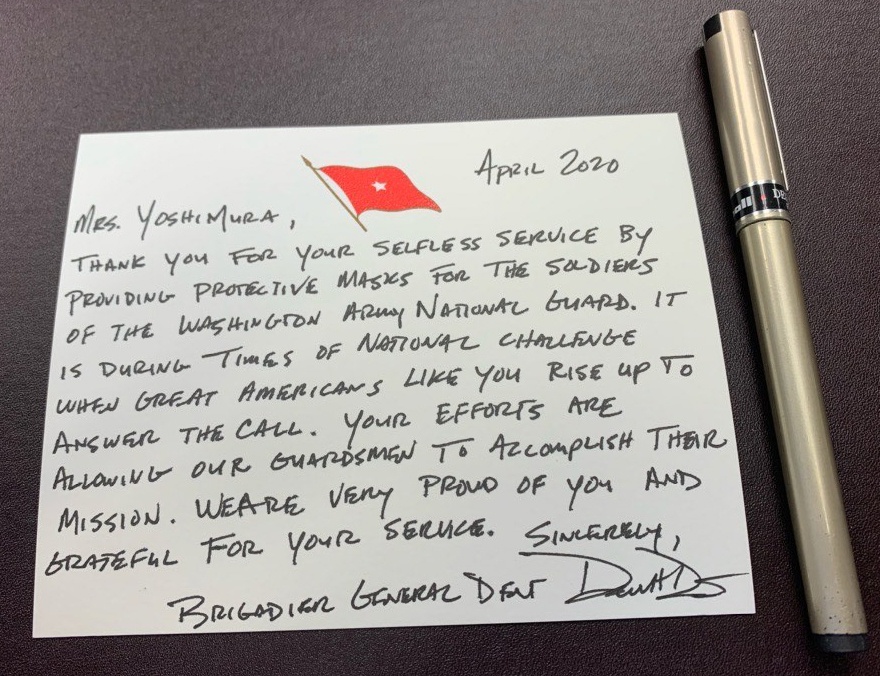 April 2020
Mrs. Yoshimura,
Thank you for your selfless service by
providing protective masks for the soldiers
of the Washington Army National Guard. It
is during times of national challenge
when great Americans like you rise up to
answer the call. Your efforts are
allowing our guardsmen to accomplish their
mission. We are very proud of you and
grateful for your service. Sincerely,
Brigadier General Dent